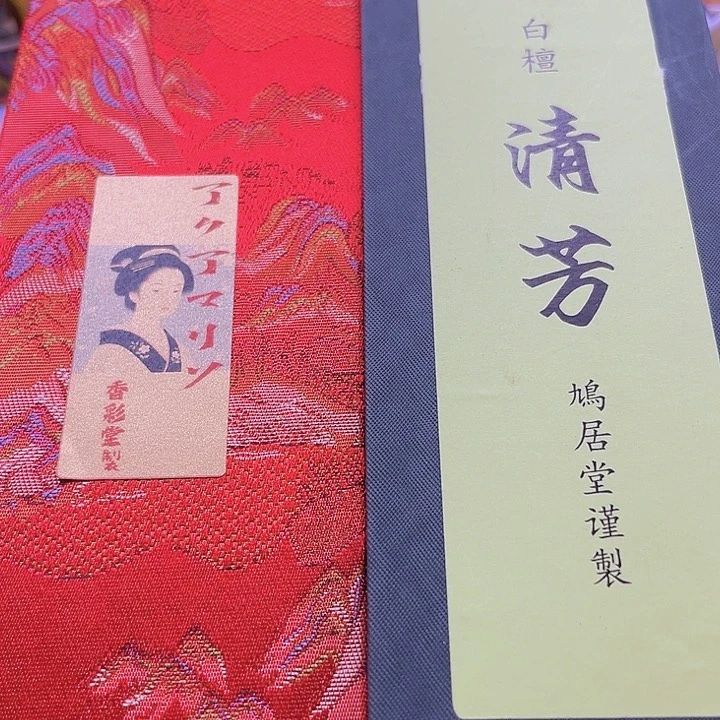 アクアマリン
香彩堂製
白檀
清芳
鳩居堂谨製